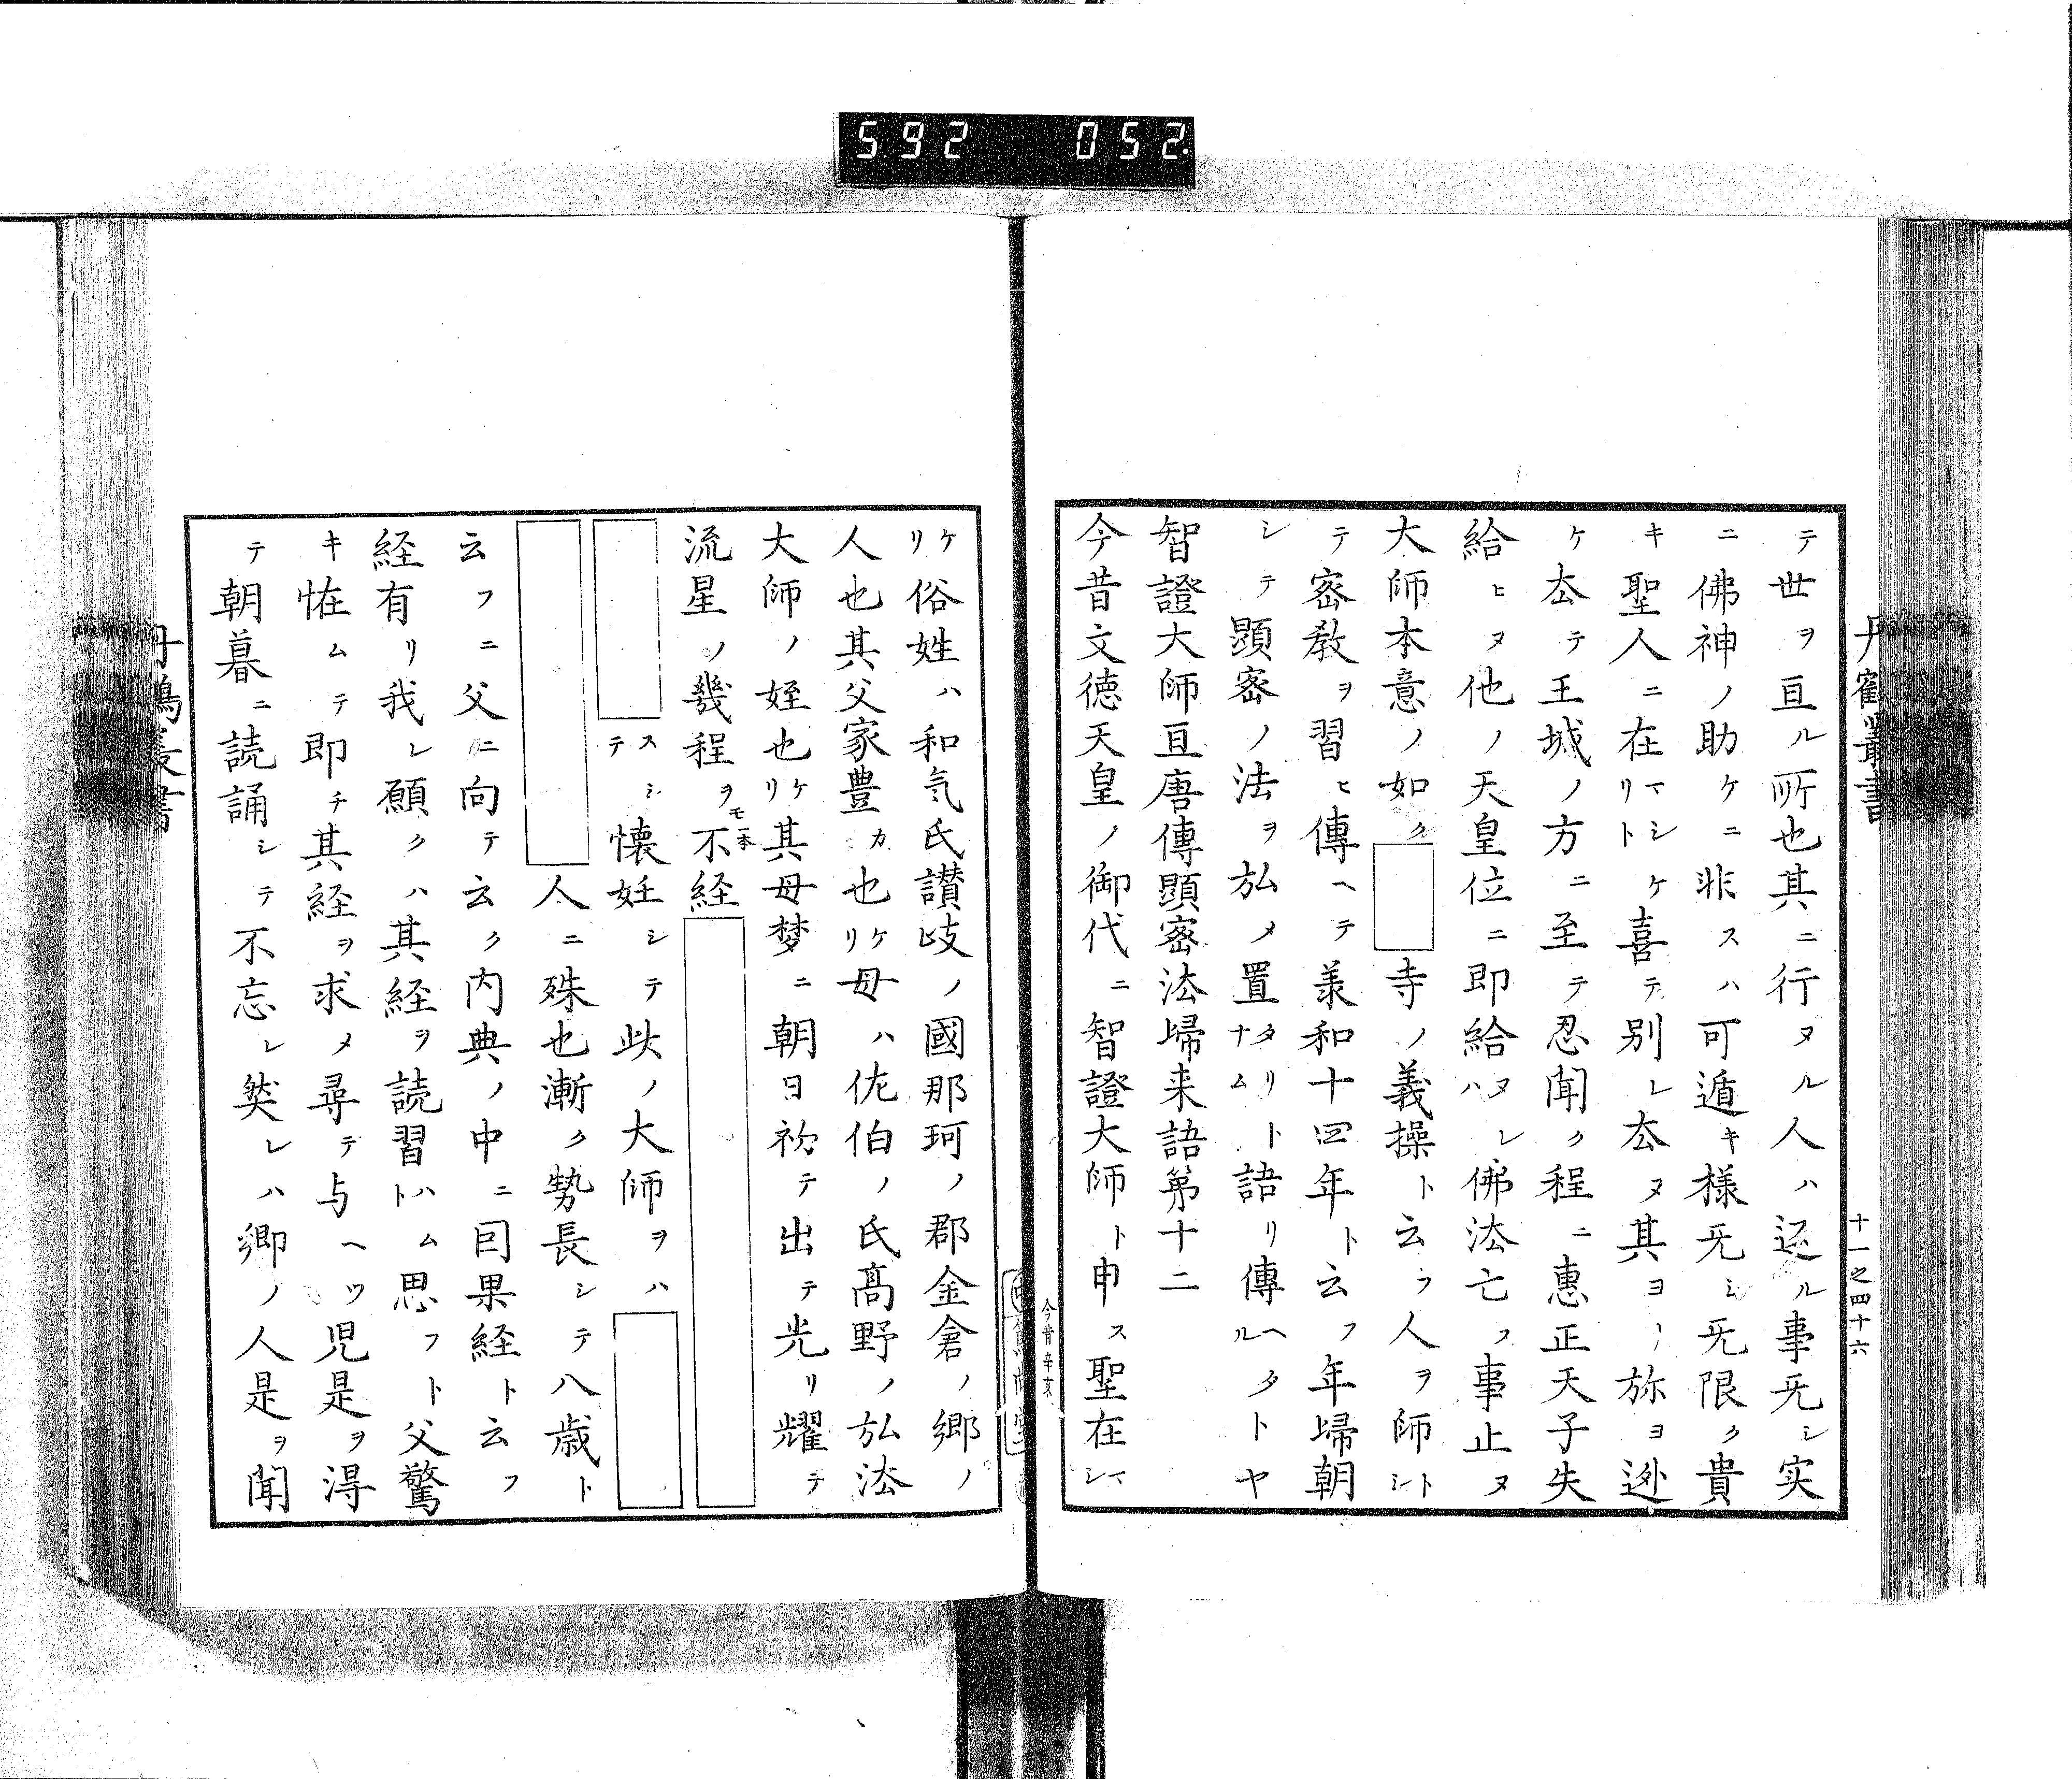 592 052.
丹鶴叢書
十一之四十六
テ世ヲ亘ル所也其ニ行ヌル人ハ返ル事旡シ実
ニ佛神ノ助ケニ非スハ可遁キ様旡シ旡限ク貴
キ聖人ニ在マシケリト喜テ別レ厺ヌ其ヨリ弥ヨ迯
ケ厺テ王城ノ方ニ至テ忍聞ク程ニ惠正天子失
給ヒヌ他ノ天皇位ニ即給ヌレハ佛法亡フ事止ヌ
大師本意ノ如ク寺ノ義操ト云フ人ヲ師トシ
テ密教ヲ習ヒ傳ヘテ羕和十四年ト云フ年歸朝
シテ顕密ノ法ヲ弘メ置タリナムト語リ傳ヘタルトヤ
智證大師亘唐傳顕密法歸来語第十二
今昔文徳天皇ノ御代ニ智證大師ト申ス聖在マシ
今昔辛亥
ケリ俗姓ハ和気氏讃岐ノ國那珂ノ郡金倉ノ郷ノ
人也其父家豊カ也ケリ母ハ佐伯ノ氏髙野ノ弘法
大師ノ姪也ケリ其母梦ニ朝日初テ出テ光リ耀テ
流星ノ幾程ヲモ一本不経
スシテ懐妊シテ此ノ大師ヲハ
人ニ殊也漸ク勢長シテ八歳ト
云フニ父ニ向テ云ク内典ノ中ニ因果経ト云フ
経有リ我レ願クハ其経ヲ読習ハムト思フト父驚
キ恠ムテ即チ其経ヲ求メ尋テ与ヘツ児是ヲ得
テ朝暮ニ読誦シテ不忘レ然レハ郷ノ人是ヲ聞